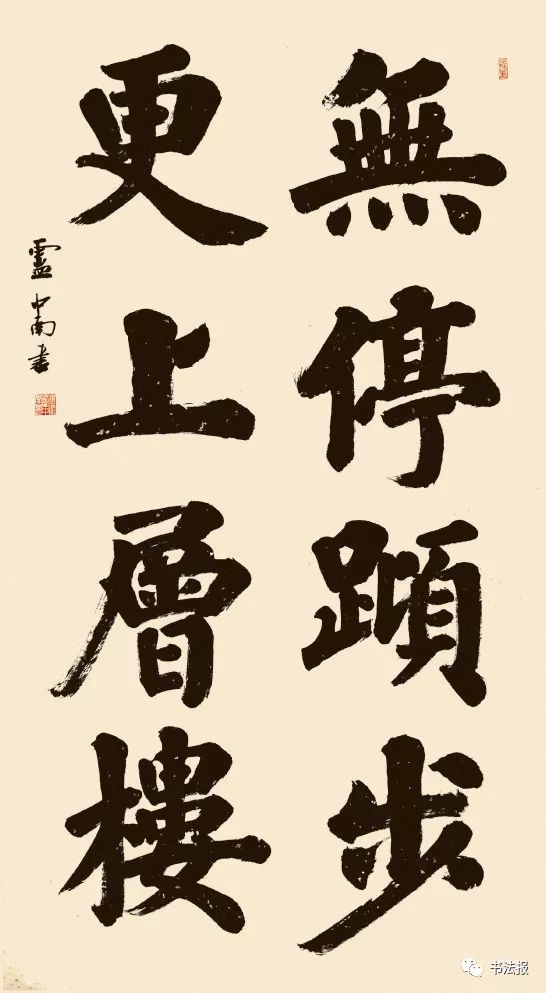 無停蹞步
更上層樓
盧中南書
书法报